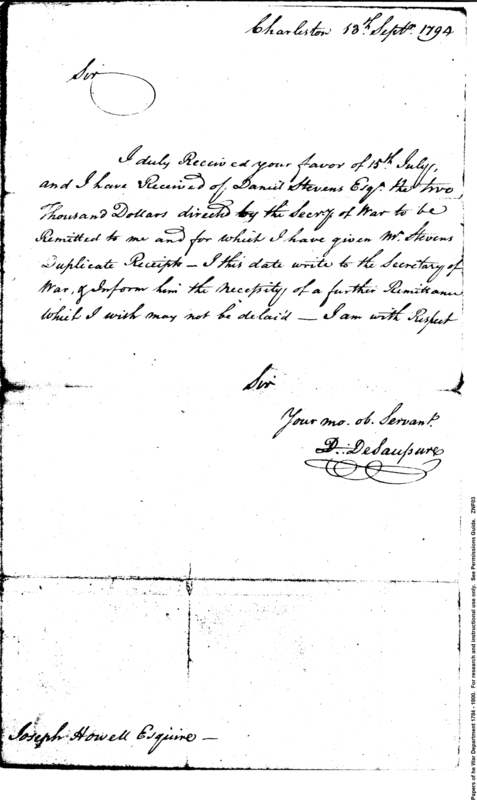 Charleston 13th. Septr. 1794
Sir
I duly Received your favor of 15th July,
and I have Received of Daniel Stevens Esqr. the two
Thousand Dollars directd by the Secry of War to be
Remitted to me and for which I have given Mr. Stevens
Duplicate Receipts — I this date write to the Secretary of
War, & Inform him the necessity of a further Remittance
which I wish may not be delaid — I am with Respect
Sir
Your mo. ob. Servant.
D. DeSaussure
Joseph Howell Esquire —
Papers of he War Department 1784 - 1800. For research and instructional use only. See Permissions Guide. ZNF03